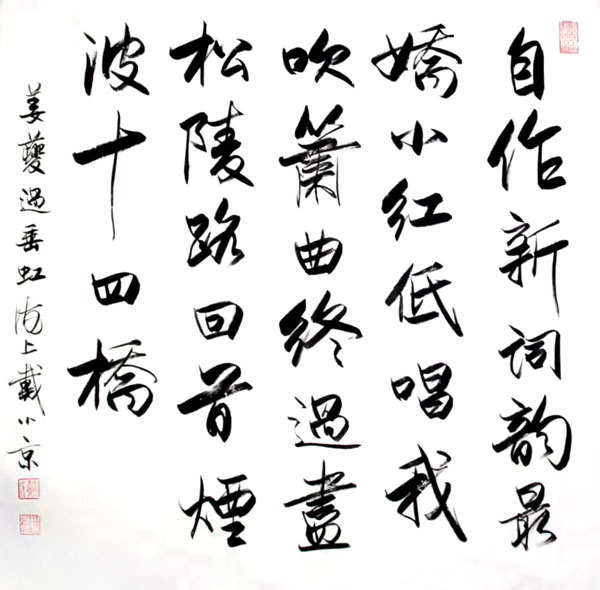 自作新词韵最
嬌小红低唱我
吹簫曲终過盡
松陵路回首煙
波十四橋
姜夔過垂虹海上戴小京